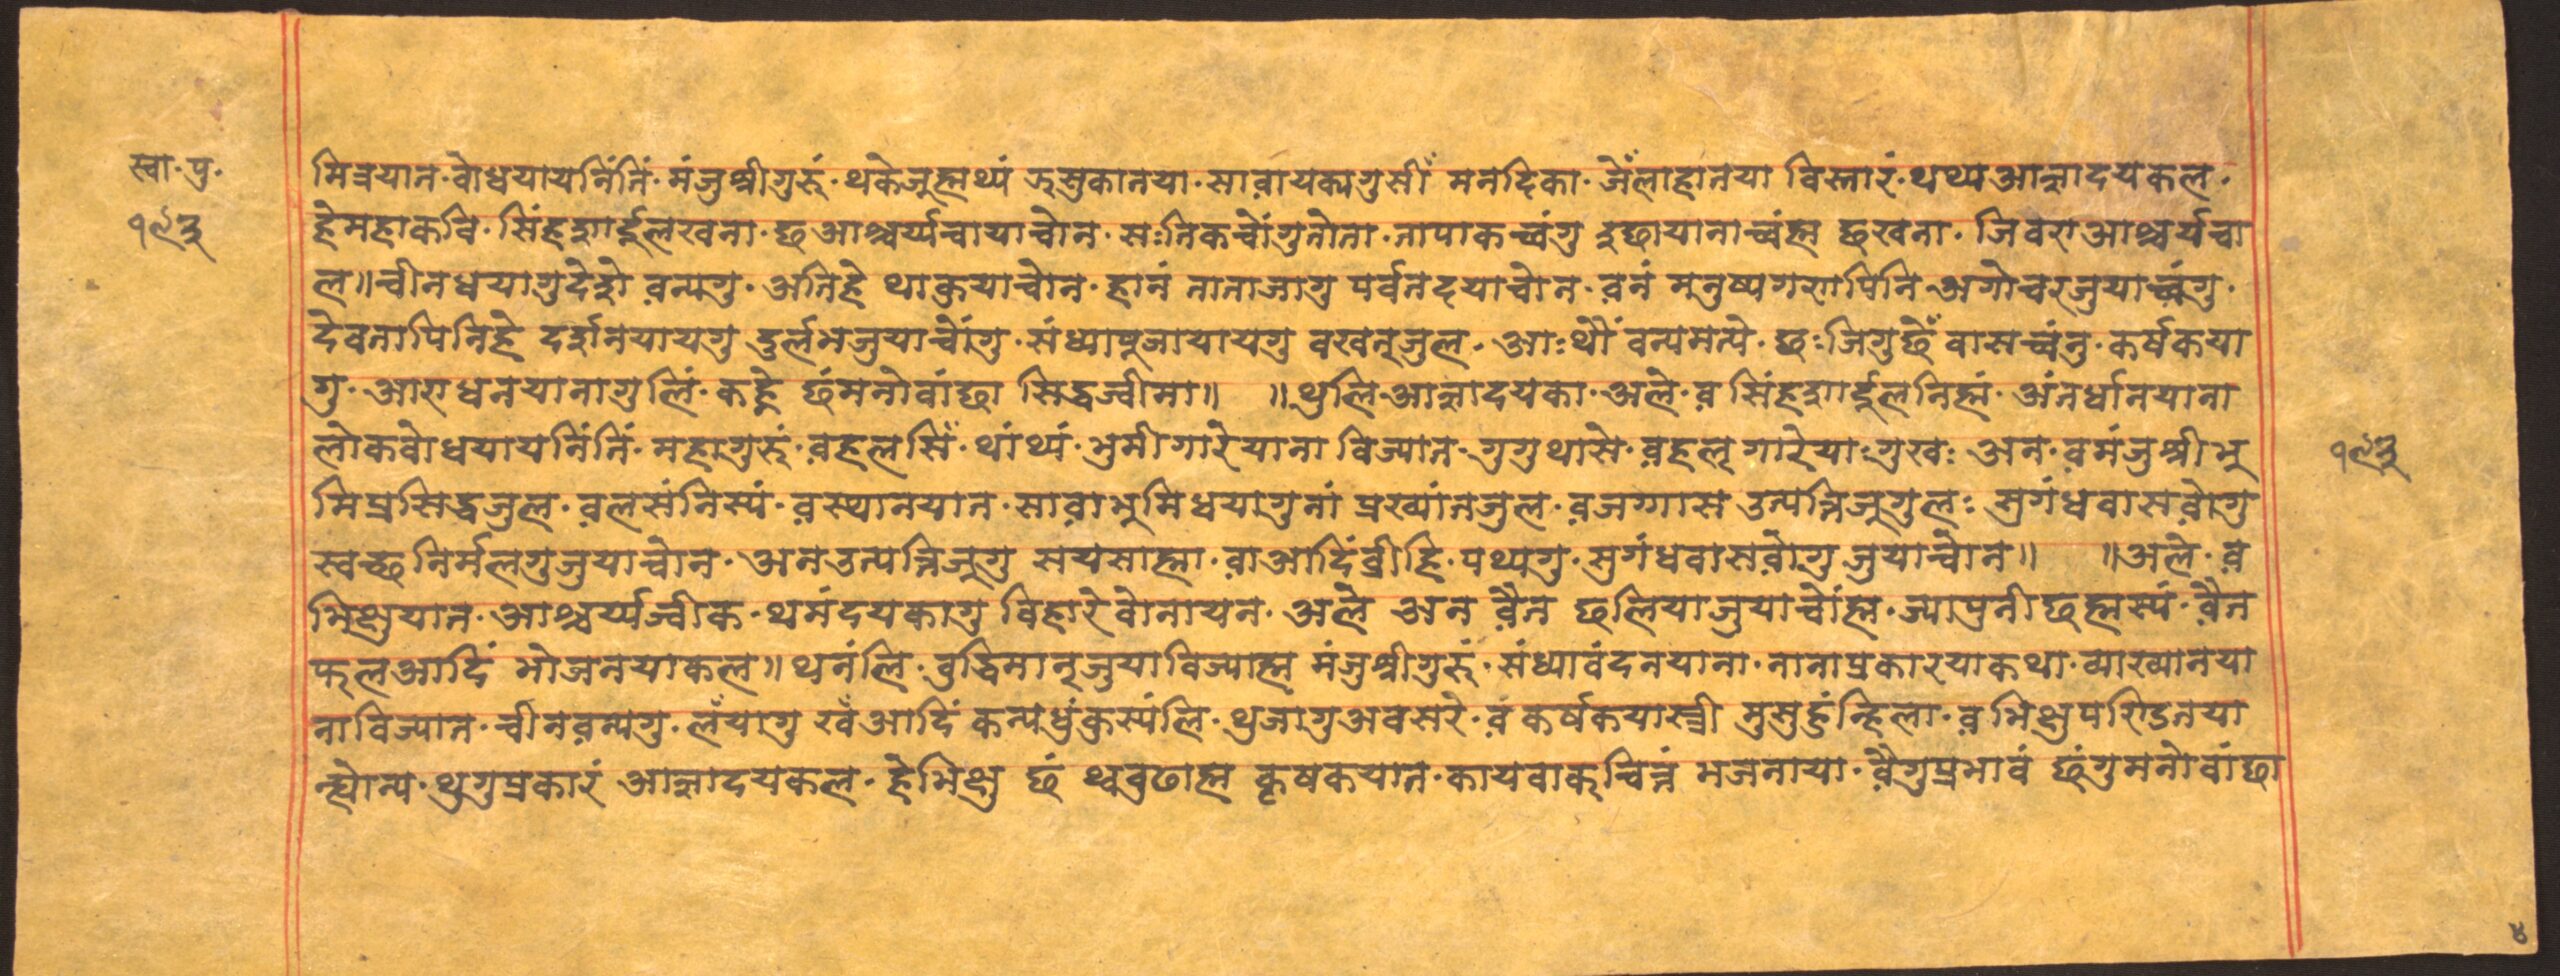 स्वा॰पु॰
१९३
मित्रयान॰बोधयायनिंतिं॰मंजुश्रीगुरुं॰थकेजूह्मथ्यं मुसुकानया॰सावायक्यगुसीं मनदिका॰जेँलाहानया विस्तारं॰थथ्यआज्ञादयकल॰
हेमहाकवि॰सिंहशार्दूलखना॰छआश्चर्य्यचायाचोन॰सःतिकचोंगुतोता॰तापाकच्वंगु दुछायानाच्वंह्म छखना॰जिवराआश्चर्यचा
ल॥चीनधयागुदेशे वन्यगु॰अतिहे थाकुयाचोन॰हानं नानाजागु पर्वतदयाचोन॰वनं मनुष्यगणपिनि॰अगोचरजुयाच्वंगु॰
देवतापिनिहे दर्शनयायगु दुर्लभजुयाचोंगु॰संध्यापूजायायगु वखतजुल॰आःथौं वन्यमत्ये॰छःजिगुछेँ वासच्वंनु॰कर्षकया
गु॰आराधनयानागुलिं॰कहे छंमनोवांछा सिद्धज्वीमा॥ ॥थुलि॰आज्ञादयका॰अले॰व सिंहशार्दूलनिह्मं॰अंतर्धानयाना
लोकबोधयायनिंतिं॰महागुरुं॰वहलसिं॰थांथ्यं॰भुमीगारेयाना विज्यात॰गुगुथासे॰वहलृ गारेयाःगुखः अन॰वमंजुश्रीभु
मिप्रसिद्धजुल॰वलसंनिस्यं॰वस्थानयात॰सावाभुमिधयागुनां प्रख्यांतजुल॰वजग्गास उत्पत्तिजूगुलः सुगंधवासवोगु
स्वच्छनिर्मलगुजुयाचोन॰अनउत्पत्तिजूगु सयसाह्मा॰वाआदिंव्रीहि॰पथ्यगु॰सुगंधवासवोगु जुयाचोन॥ ॥अले॰व
भिक्षुयात॰आश्चर्य्यज्वीक॰थमंदयकागु विहारे वोनायन॰अले अन वैत छलियाजुयाचोंह्म॰ज्यापुनी छह्मस्यं॰वैत
फलआदिं भोजनयाकल॥थनंलि॰बुद्धिमानजुयाविज्याह्म मंजुश्रीगुरुं॰संध्यावंदनयाना॰नानाप्रकारयाकथा॰व्याख्यानया
नाविज्यात॰चीनवन्यगु॰लँयागु खँआदिं कन्यधुंकुस्यंलि॰थुजागुअवसरे॰वं कर्षकयास्त्री मुसुहुंन्हिला॰व भिक्षुपरिडतया
न्ह्योन्य॰थुगुप्रकारं आज्ञादयकल॰हेभिक्षु छं थ्वबुढाह्म कृषकयात॰कायवाकचित्तं भजनाया॰वैगुप्रभावं छंगुमनोवांछा
१९३
४